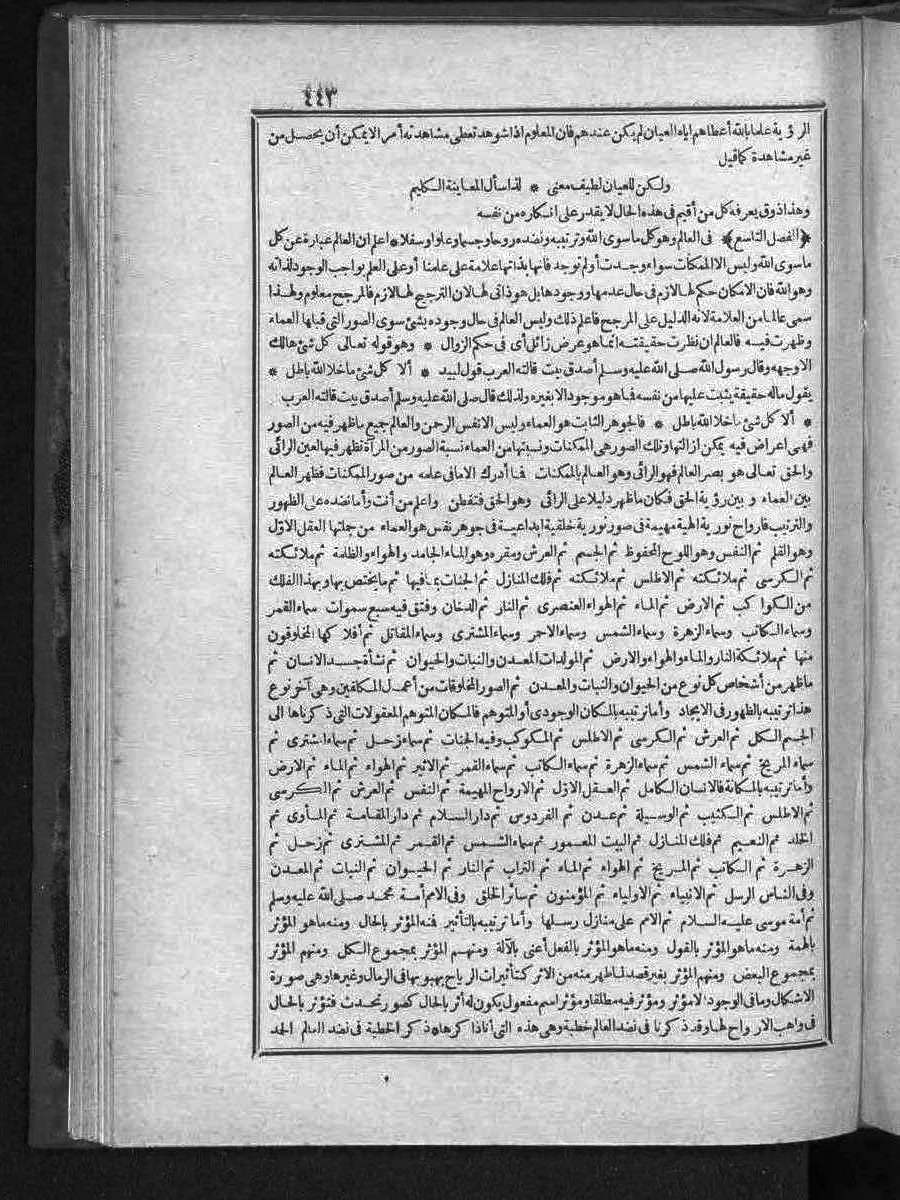 ٤٤٣
الرؤية علما بالله أعطاهم اياه العيان لم يكن عندهم فان المعلوم اذا شوهد تعطى مشاهدته أمرا لا يمكن أن يحصل من
غير مشاهدة كما قيل
ولكن للعيان لطيف معنى * لذا سأل المعاينة الكليم
وهذا ذوق يعرفه كل من أقيم فى هذه الحال لا يقدر على انكاره من نفسه
﴿الفصل التاسع﴾ فى العالم وهو كل ما سوى الله وترتيبه ونضده روحا وجسما وعلوا وسفلا * اعلم ان العالم عبارة عن كل
ما سوى الله وليس الا الممكنات سواء وجدت أو لم توجد فانها بذاتها علامة على علمنا أو على العلم بواجب الوجود لذاته
وهو الله فان الامكان حكم لها لازم فى حال عدمها ووجودها بل هو ذاتى لها لان الترجيح لها لازم فالمرجح معلوم ولهذا
سمى عالما من العلامة لانه الدليل على المرجح فاعلم ذلك وليس العالم فى حال وجوده بشئ سوى الصور التى قبلها العماء
وظهرت فيه فالعالم ان نظرت حقيقته انما هو عرض زائل أى فى حكم الزوال * وهو قوله تعالى كل شئ هالك
الا وجهه وقال رسول الله صلى الله عليه وسلم أصدق بيت قالته العرب قول لبيد * ألا كل شئ ما خلا الله باطل *
يقول ماله حقيقة يثبت عليها من نفسه فما هو موجود الا بغيره ولذلك قال صلى الله عليه وسلم أصدق بيت قالته العرب
* ألا كل شئ ما خلا الله باطل * فالجوهر الثابت هو العماء وليس الا نفس الرحمن والعالم جميع ما ظهر فيه من الصور
فهى اعراض فيه يمكن ازالتها وتلك الصور هى الممكنات ونسبتها من العماء نسبة الصور من المرآة تظهر فيها لعين الرائى
والحق تعالى هو بصر العالم فهو الرائى وهو العالم بالممكنات فما أدرك الا ما فى علمه من صور الممكنات فظهر العالم
بين العماء و بين رؤية الحق فكان ما ظهر دليلا على الرائى وهو الحق فتفطن واعلم من أنت وأما نضده على الظهور
والترتيب فارواح نورية الهية مهيمة فى صور نورية خلقية ابداعية فى جوهر نفس هو العماء من جملتها العقل الاول
وهو القلم ثم النفس وهو اللوح المحفوظ ثم الجسم ثم العرش ومقره وهو الماء الجامد والهواء والظلمة ثم ملائكته
ثم الكرسى ثم ملائكته ثم الاطلس ثم ملائكته ثم فلك المنازل ثم الجنات بما فيها ثم ما يختص بها وبهذا الفلك
من الكواكب ثم الارض ثم الماء ثم الهواء العنصرى ثم النار ثم الدخان وفتق فيه سبع سموات سماء القمر
وسماء الكاتب وسماء الزهرة وسماء الشمس وسماء الاحمر وسماء المشترى وسماء المقاتل ثم أفلاكها المخلوقون
منها ثم ملائكة النار والماء والهواء والارض ثم المولدات المعدن والنبات والحيوان ثم نشأة جسد الانسان ثم
ما ظهر من أشخاص كل نوع من الحيوان والنبات والمعدن ثم الصور المخلوقات من أعمال المكلفين وهى آخر نوع
هذا ترتيبه بالظهور فى الايجاد وأما ترتيبه بالمكان الوجودى أو المتوهم فالمكان المتوهم المعقولات التى ذكرناها الى
الجسم الكل ثم العرش ثم الكرسى ثم الاطلس ثم المكوكب وفيه الجنات ثم سماء زحل ثم سماء المشترى ثم
سماء المريخ ثم سماء الشمس ثم سماء الزهرة ثم سماء الكاتب ثم سماء القمر ثم الاثير ثم الهواء ثم الماء ثم الارض
وأما ترتيبه بالمكانة فالانسان الكامل ثم العقل الاول ثم الارواح المهيمة ثم النفس ثم العرش ثم الكرسى
ثم الاطلس ثم الكثيب ثم الوسيلة ثم عدن ثم الفردوس ثم دار السلام ثم دار المقامة ثم المأوى ثم
الخلد ثم النعيم ثم فلك المنازل ثم البيت المعمور ثم سماء الشمس ثم القمر ثم المشترى ثم زحل ثم
الزهرة ثم الكاتب ثم المريخ ثم الهواء ثم الماء ثم التراب ثم النار ثم الحيوان ثم النبات ثم المعدن
وفى الناس الرسل ثم الانبياء ثم الاولياء ثم المؤمنون ثم سائر الخلق وفى الامم أمة محمد صلى الله عليه وسلم
ثم أمة موسى عليه السلام ثم الامم على منازل رسلها وأما ترتيبه بالتأثير فمنه المؤثر بالحال ومنه ما هو المؤثر
بالهمة ومنه ما هو المؤثر بالقول ومنه ما هو المؤثر بالفعل أعنى بالآلة ومنهم المؤثر بمجموع الكل ومنهم المؤثر
بمجموع البعض ومنهم المؤثر بغير قصد لما ظهر منه من الاثر كتأثيرات الرياح بهبوبها فى الرمال وغيرها وهى صورة
الاشكال وما فى الوجود الا مؤثر ومؤثر فيه مطلقا ومؤثر اسم مفعول يكون له أثر بالحال كصور تحدث فتؤثر بالحال
فى واهب الارواح لها وقد ذكرنا فى نضد العالم خطبة وهى هذه التى أنا ذاكرها * ذكر الخطبة فى نضد العالم الحمد